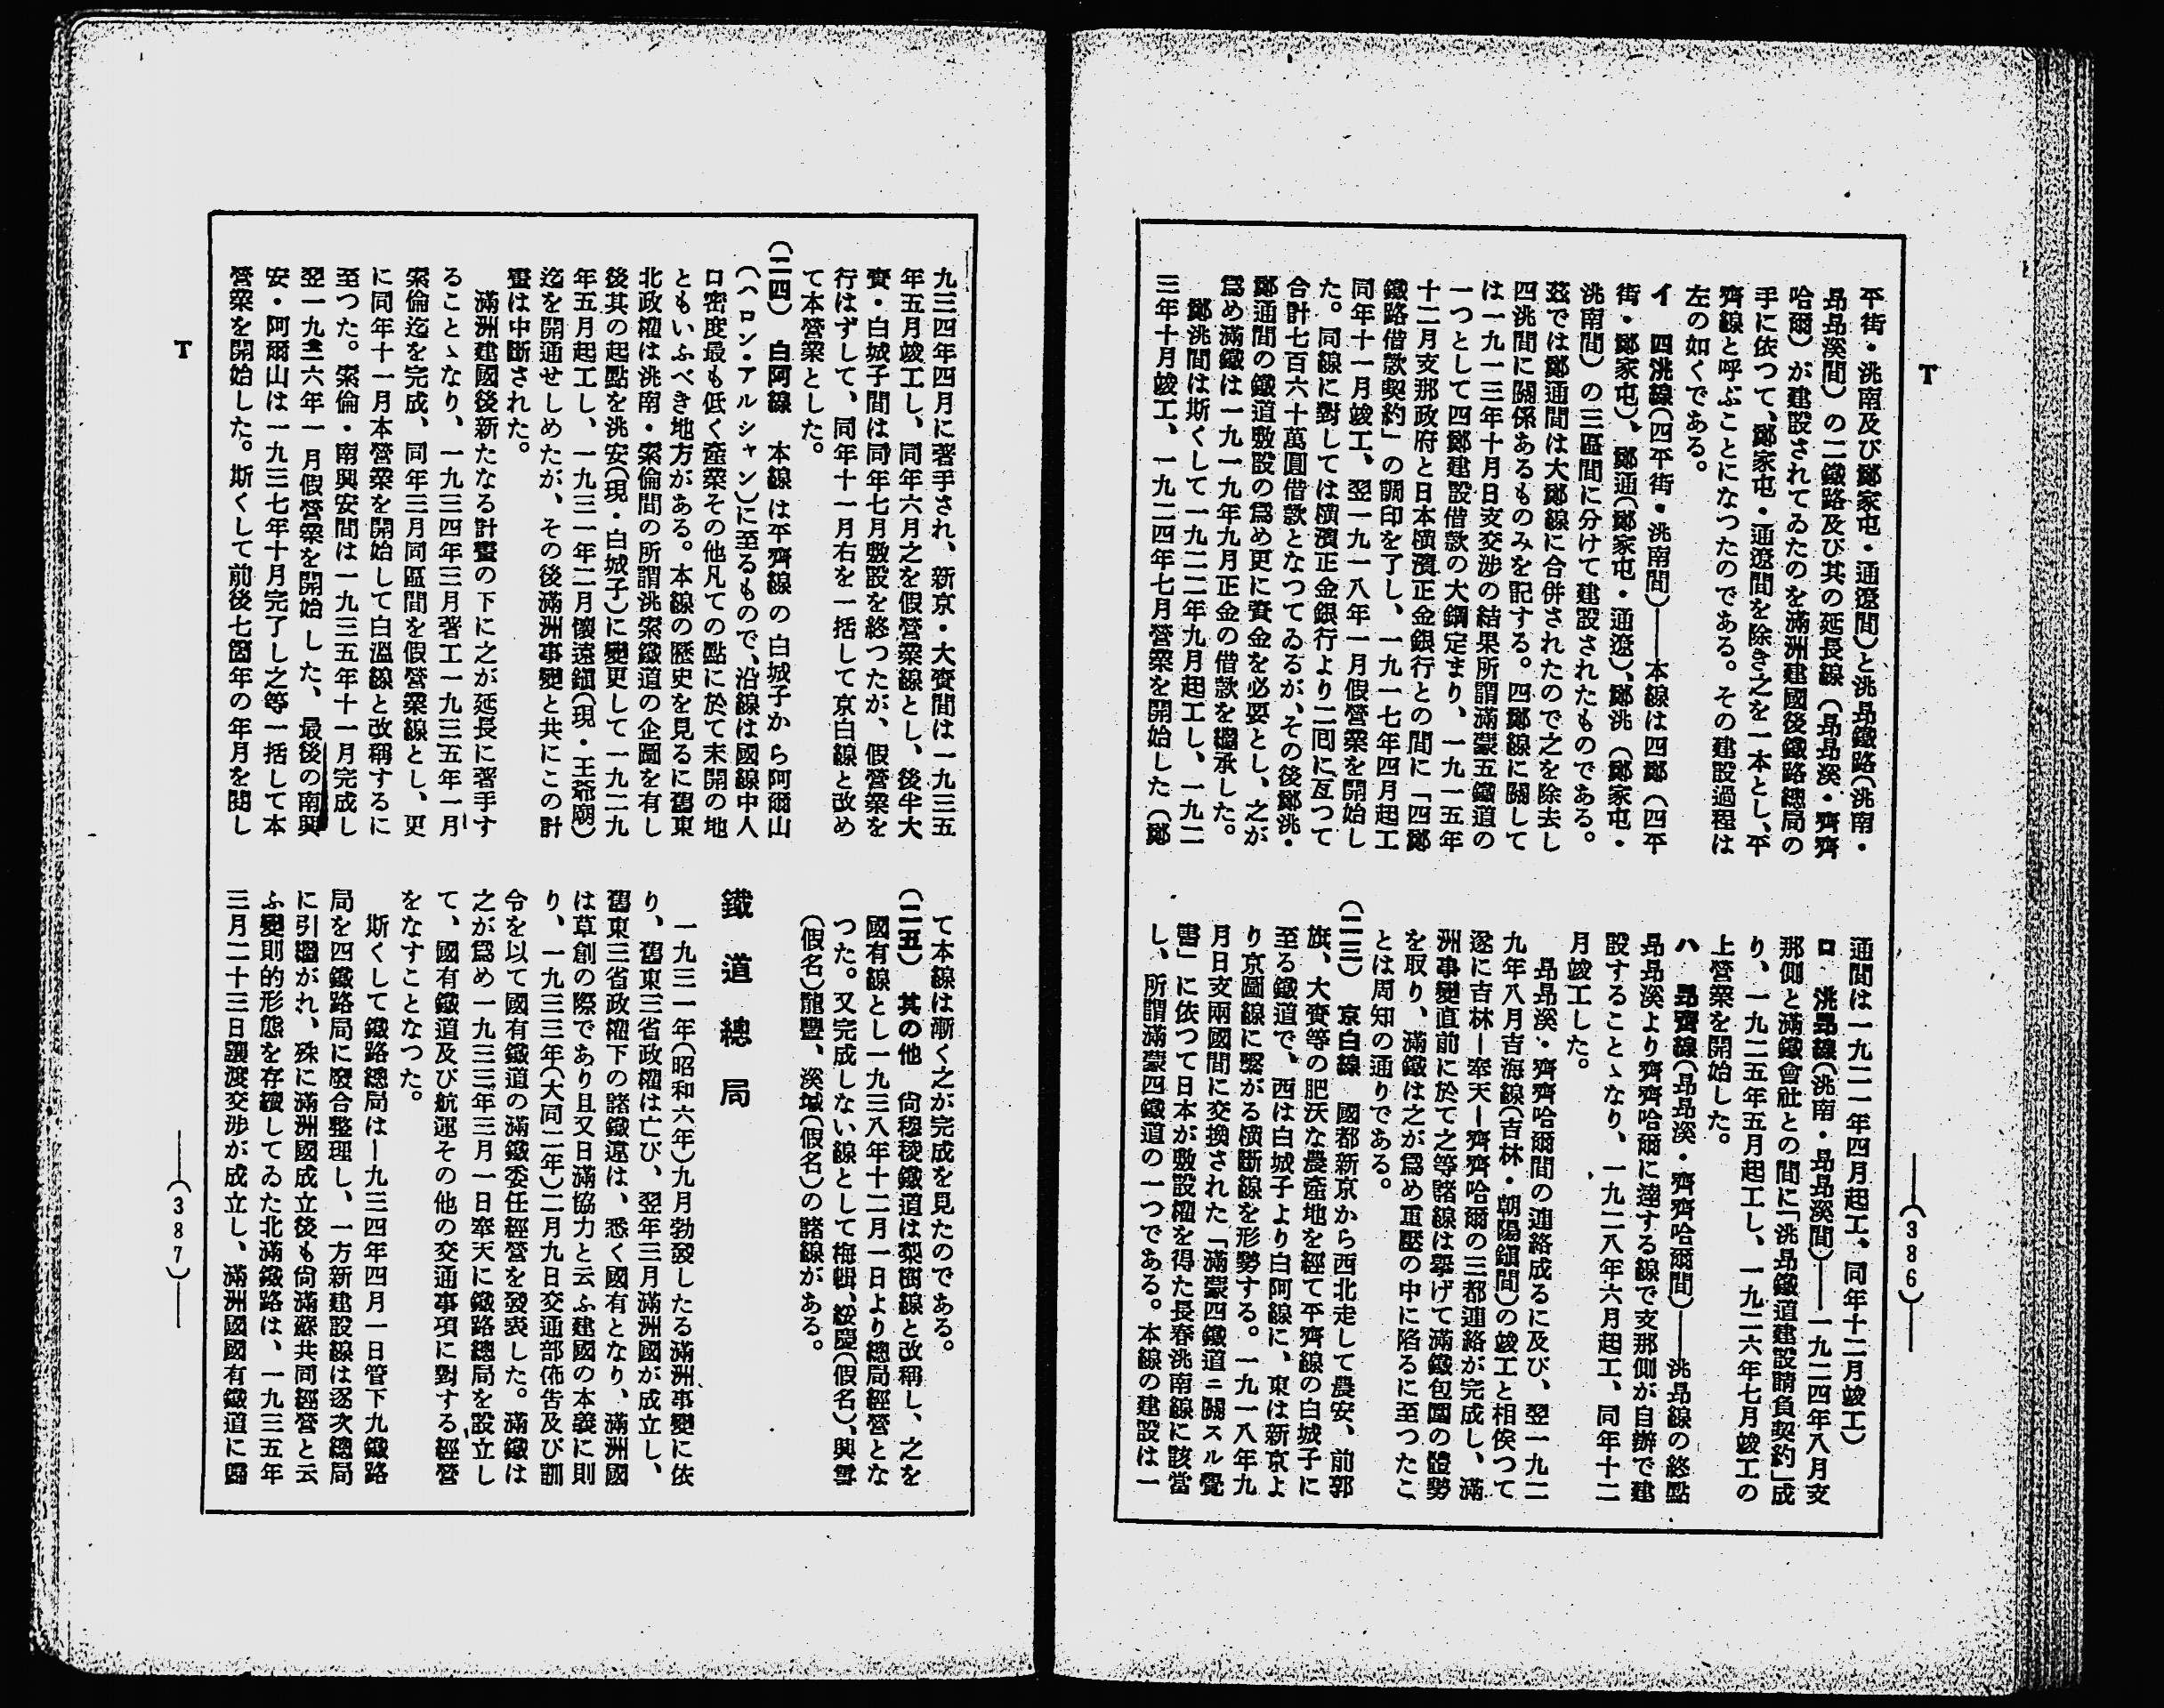 T
平街・洮南及び鄭家屯・通遼間)と洮昂鐵路(洮南・
昂昂溪間)の二鐵路及び其の延長線(昂昂溪・齊齊
哈爾)が建設されてゐたのを滿洲建國後鐵路總局の
手に依つて、鄭家屯・通遼間を除き之を一本とし、平
齊線と呼ぶことになつたのである。その建設過程は
左の如くである。
イ 四洮線(四平街・洮南間)――本線は四鄭(四平
街・鄭家屯)、鄭通(鄭家屯・通遼)、鄭洮(鄭家屯・
洮南間)の三區間に分けて建設されたものである。
茲では鄭通間は大鄭線に合併されたので之を除去し
四洮間に關係あるものみを記する。四鄭線に關して
は一九一三年十月日支交渉の結果所謂滿蒙五鐵道の
一つとして四鄭建設借款の大綱定まり、一九一五年
十二月支那政府と日本橫濱正金銀行との間に「四鄭
鐵路借款契約」の調印を了し、一九一七年四月起工
同年十一月竣工、翌一九一八年一月假營業を開始し
た。同線に對しては橫濱正金銀行より二囘に亙つて
合計七百六十萬圓借款となつてゐるが、その後鄭洮・
鄭通間の鐵道敷設の爲め更に資金を必要とし、之が
爲め滿鐵は一九一九年九月正金の借款を繼承した。
鄭洮間は斯くして一九二二年九月起工し、一九二
三年十月竣工、一九二四年七月營業を開始した(鄭
通間は一九二一年四月起工、同年十二月竣工)
ロ 洮昂線(洮南・昂昂溪間)――一九二四年八月支
那側と滿鐵會社との間に「洮昂鐵道建設請負契約」成
り、一九二五年五月起工し、一九二六年七月竣工の
上營業を開始した。
ハ 昂齊線(昂昂溪・齊齊哈爾間)――洮昂線の終點
昂昂溪より齊齊哈爾に達する線で支那側が自辦で建
設することゝなり、一九二八年六月起工、同年十二
月竣工した。
昂昂溪・齊齊哈爾間の連絡成るに及び、翌一九二
九年八月吉海線(吉林・朝陽鎭間)の竣工と相俟つて
遂に吉林―奉天―齊齊哈爾の三都連絡が完成し、滿
洲事變直前に於て之等諸線は擧げて滿鐵包圍の體勢
を取り、滿鐵は之が爲め重壓の中に陷るに至つたこ
とは周知の通りである。
(二三) 京白線 國都新京から西北走して農安、前郭
旗、大賚等の肥沃な農產地を經て平齊線の白城子に
至る鐵道で、西は白城子より白阿線に、東は新京よ
り京圖線に繫がる橫斷線を形勢する。一九一八年九
月日支兩國間に交換された「滿蒙四鐵道ニ關スル覺
書」に依つて日本が敷設權を得た長春洮南線に該當
し、所謂滿蒙四鐵道の一つである。本線の建設は一
――(386)――
九三四年四月に著手され、新京・大賚間は一九三五
年五月竣工し、同年六月之を假營業線とし、後半大
賚・白城子間は同年七月敷設を終つたが、假營業を
行はずして、同年十一月右を一括して京白線と改め
て本營業とした。
(二四) 白阿線 本線は平齊線の白城子から阿爾山
(ハロン・アルシャン)に至るもので、沿線は國線中人
口密度最も低く產業その他凡ての點に於て末開の地
ともいふべき地方がある。本線の歷史を見るに舊東
北政權は洮南・索倫間の所謂洮索鐵道の企圖を有し
後其の起點を洮安(現・白城子)に變更して一九二九
年五月起工し、一九三一年二月懷遠鎭(現・王爺廟)
迄を開通せしめたが、その後滿洲事變と共にこの計
畫は中斷された。
滿洲建國後新たなる計畫の下に之が延長に著手す
ることゝなり、一九三四年三月著工一九三五年一月
索倫迄を完成、同年三月同區間を假營業線とし、更
に同年十一月本營業を開始して白溫線と改稱するに
至つた。索倫・南興安間は一九三五年十一月完成し
翌一九三六年一月假營業を開始した、最後の南興
安・阿爾山は一九三七年十月完了し之等一括して本
營業を開始した。斯くして前後七箇年の年月を閱し
て本線は漸く之が完成を見たのである。
(二五) 其の他 尙穆稜鐵道は梨樹線と改稱し、之を
國有線とし一九三八年十二月一日より總局經營とな
つた。又完成しない線として梅輯、綏慶(假名)、興雪
(假名)龍豐、溪城(假名)の諸線がある。
鐵道總局
一九三一年(昭和六年)九月勃發したる滿洲事變に依
り、舊東三省政權は亡び、翌年三月滿洲國が成立し、
舊東三省政權下の諸鐵道は、悉く國有となり、滿洲國
は草創の際であり且又日滿協力と云ふ建國の本義に則
り、一九三三年(大同二年)二月九日交通部佈告及び訓
令を以て國有鐵道の滿鐵委任經營を發表した。滿鐵は
之が爲め一九三三年三月一日奉天に鐵路總局を設立し
て、國有鐵道及び航運その他の交通事項に對する經營
をなすことなつた。
斯くして鐵路總局は一九三四年四月一日管下九鐵路
局を四鐵路局に廢合整理し、一方新建設線は逐次總局
に引繼がれ、殊に滿洲國成立後も尙滿蘇共同經營と云
ふ變則的形態を存續してゐた北滿鐵路は、一九三五年
三月二十三日讓渡交涉が成立し、滿洲國國有鐵道に歸
T
――(387)――